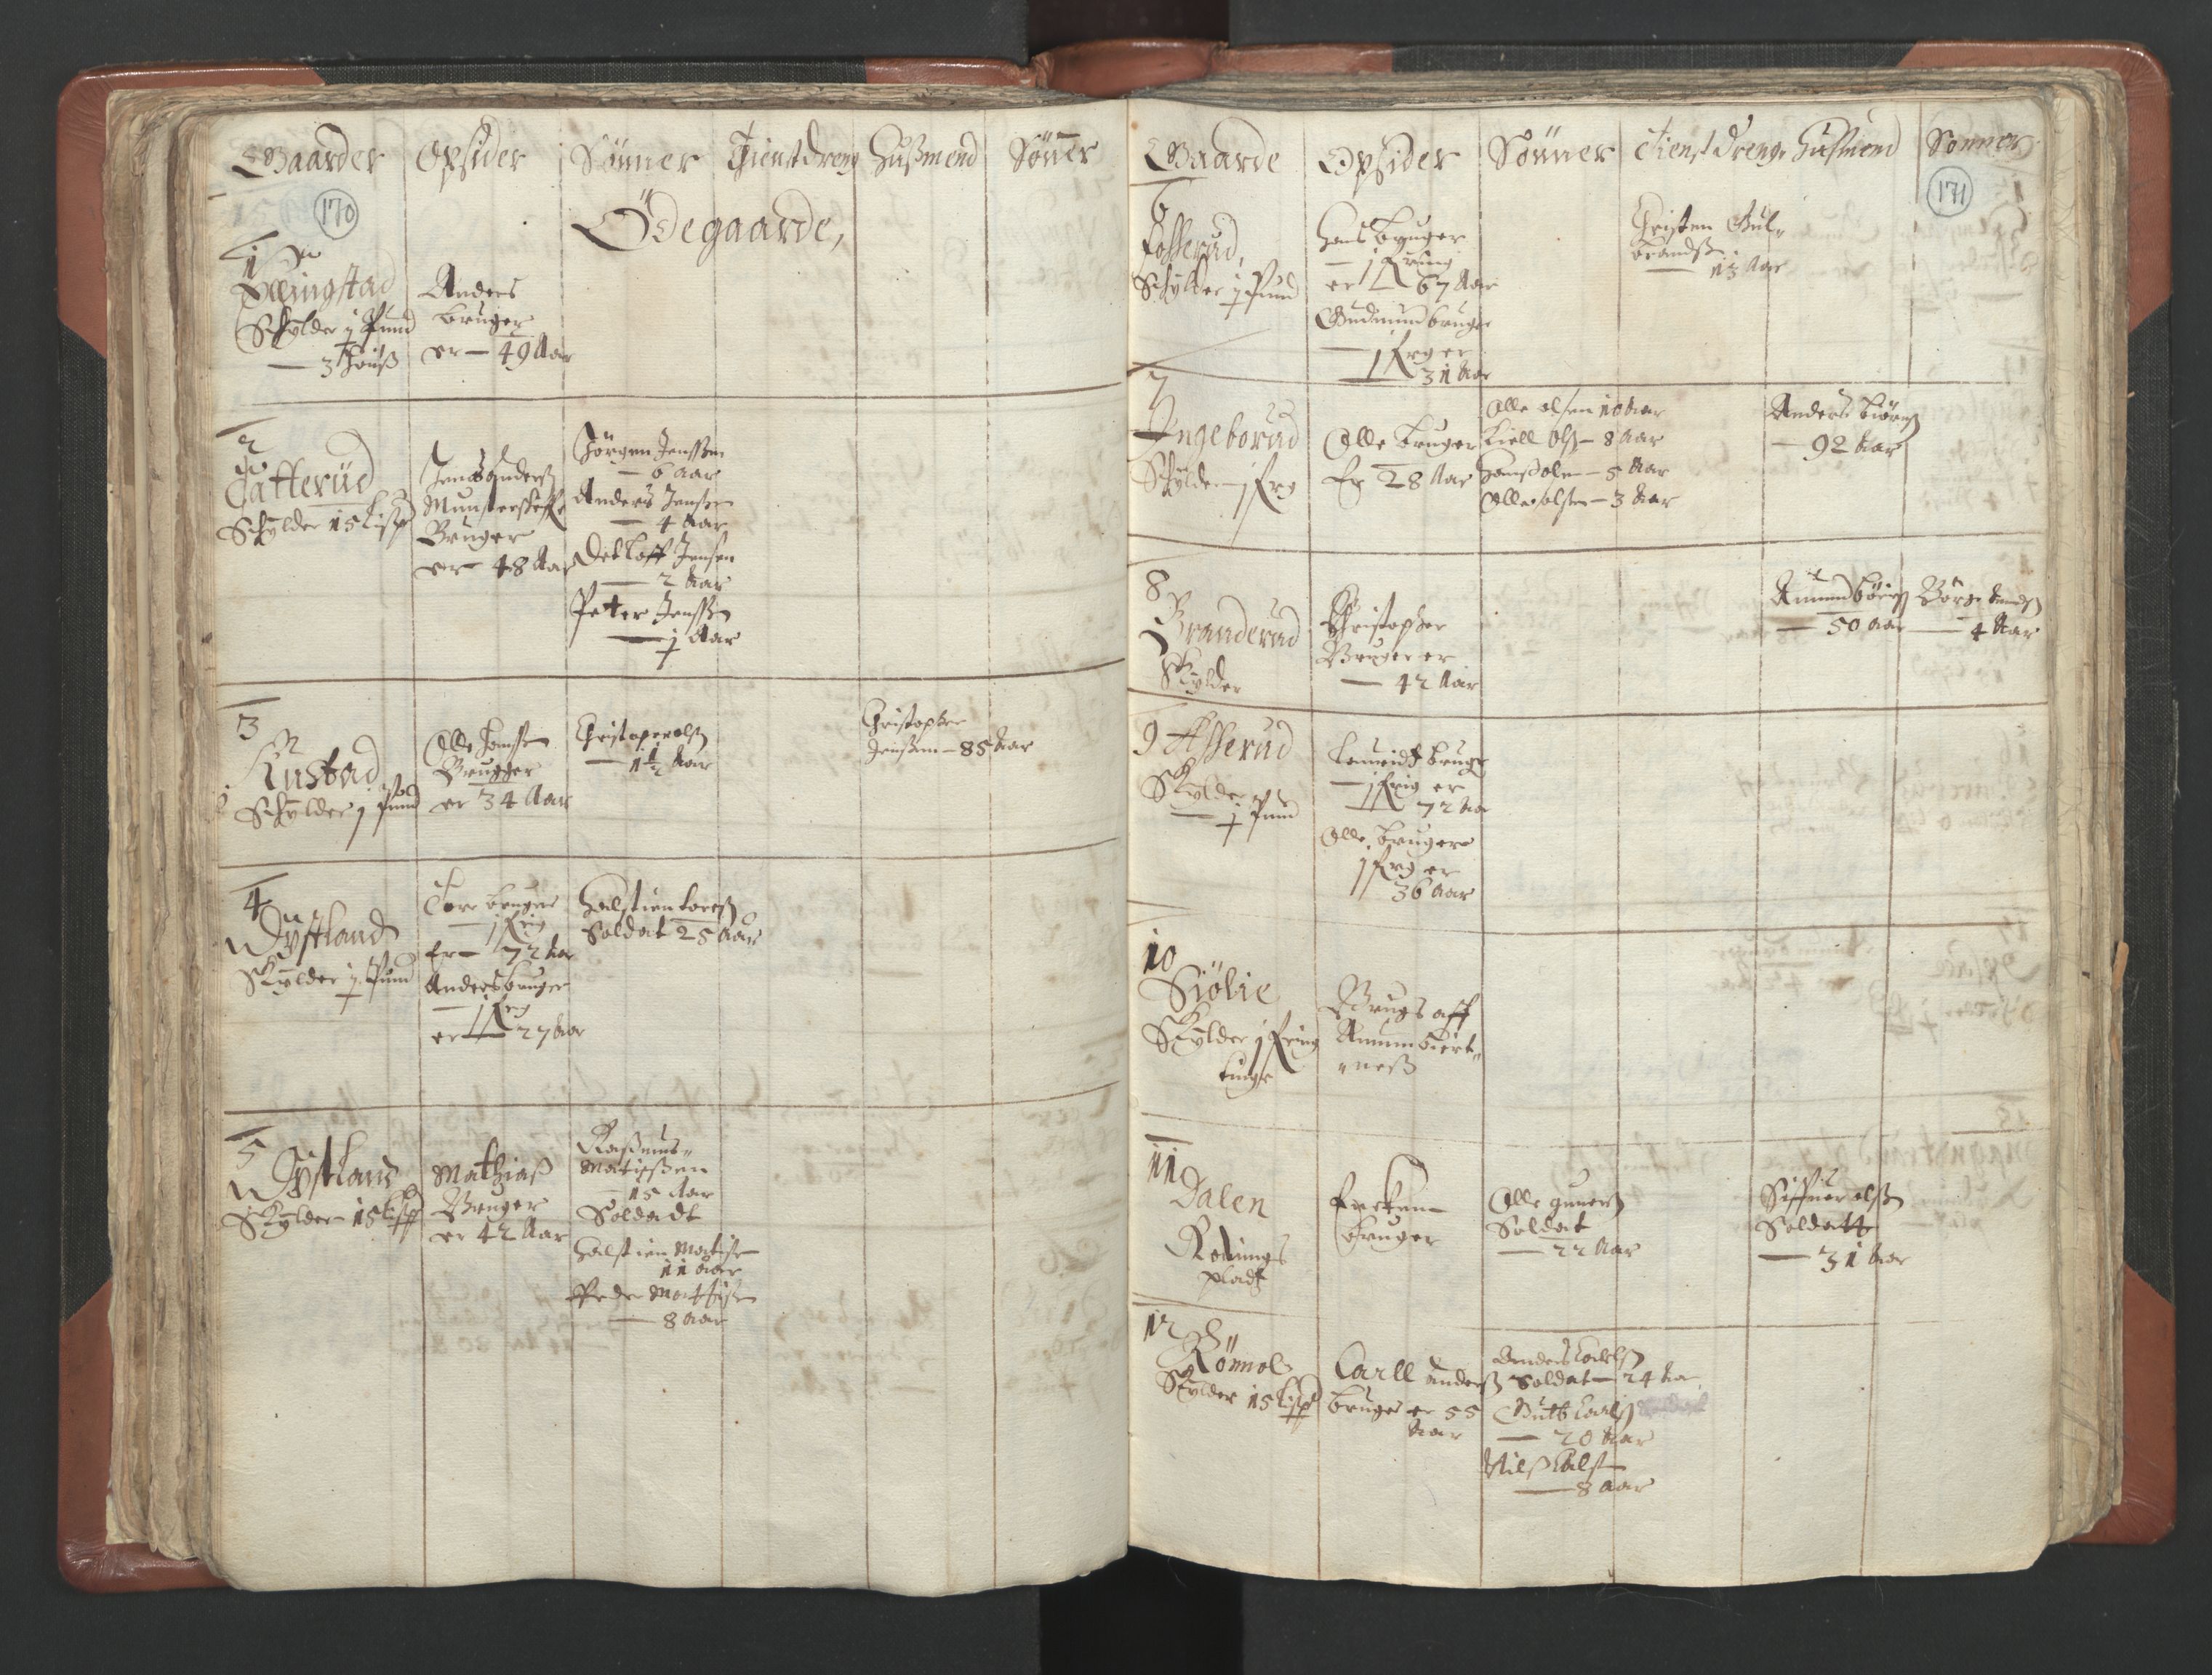 Gaarder Opsider Sönner Tienstdreng Hußmend Söner
170
Ödegaarde,
1
Ellingstad
Schylder j Pund
3 Hous
Anders
bruger
er — 49 Aar
2
Catterud
Schylder 15 Lispd
Jens Anderß
Bruger
er 48 Aar
Jörgen Jenssen
— 6 aar
Anders Jensen
— 4 Aar
Detloff Jensen
— 2 Aar
Petter Jenssen
— j Aar
3
Knstad
Schylder j Pund
Olle Hanssen
Brugger
er 34 Aar
Christoper olß
— 1½ Aar
Christopher
Jenssen — 85 Aar
4
Dystland
Skylder j Pund
Tore bruger
— j frig
Er — 72 Aar
Anders bruger
— j frg
er — 27 Aar
Halstien toreß
Soldat 25 Aar
5
Dystland
Skylder 15 Lispd
Mathiaß
Bruger
er 42 Aar
Raßmus
Matißen
15 Aar
Soldadt
Halstien Matisen
11 aar
Peder Mattisen
— 8 Aar
Gaarde Opsider Sönner Tienst drenge Husmend Sönner
171
6
Fosserud,
Schylder j Pund
Hans bruger
— j fring
er 67 Aar
Gudmund bruger
— j frg er
31 Aar
Christen Gul-
brandß
— 13 Aar
7
Ingeborud
Skylder j frg
Olle bruger
Er 28 Aar
Olle olsen 10 Aar
Kiell Olß — 8 Aar
Hans olsen — 5 Aar
Olle olsen — 3 Aar
Anders Biörnß
— 92 Aar
8
Branderud
Skylder
Christopher
Bruger er
— 42 Aar
Amund
— 50 aar
Börge Amundß
— 4 Aar
9 Asserud
Skylder
— j Pund
Lauridt bruger
— j frig er
72 Aar
Olle bruger
j frg er
36 Aar
10
Siölie
Skylder j fring
tunge
Brugs aff
Amum biert-
neß
11
Dalen
Rodnings
pladt
bruger
Olle gunerß
Soldat
— 22 Aar
Siffuer olß
Soldatt
— 31 Aar
12
Römol
Skylder 15 Lispd
Carll Anderß
bruger er 55
Aar
Anders Carlß
Soldat — 24 Aar
Gutb Carlß
— 20 Aar
Nilß Calsen
— 8 Aar